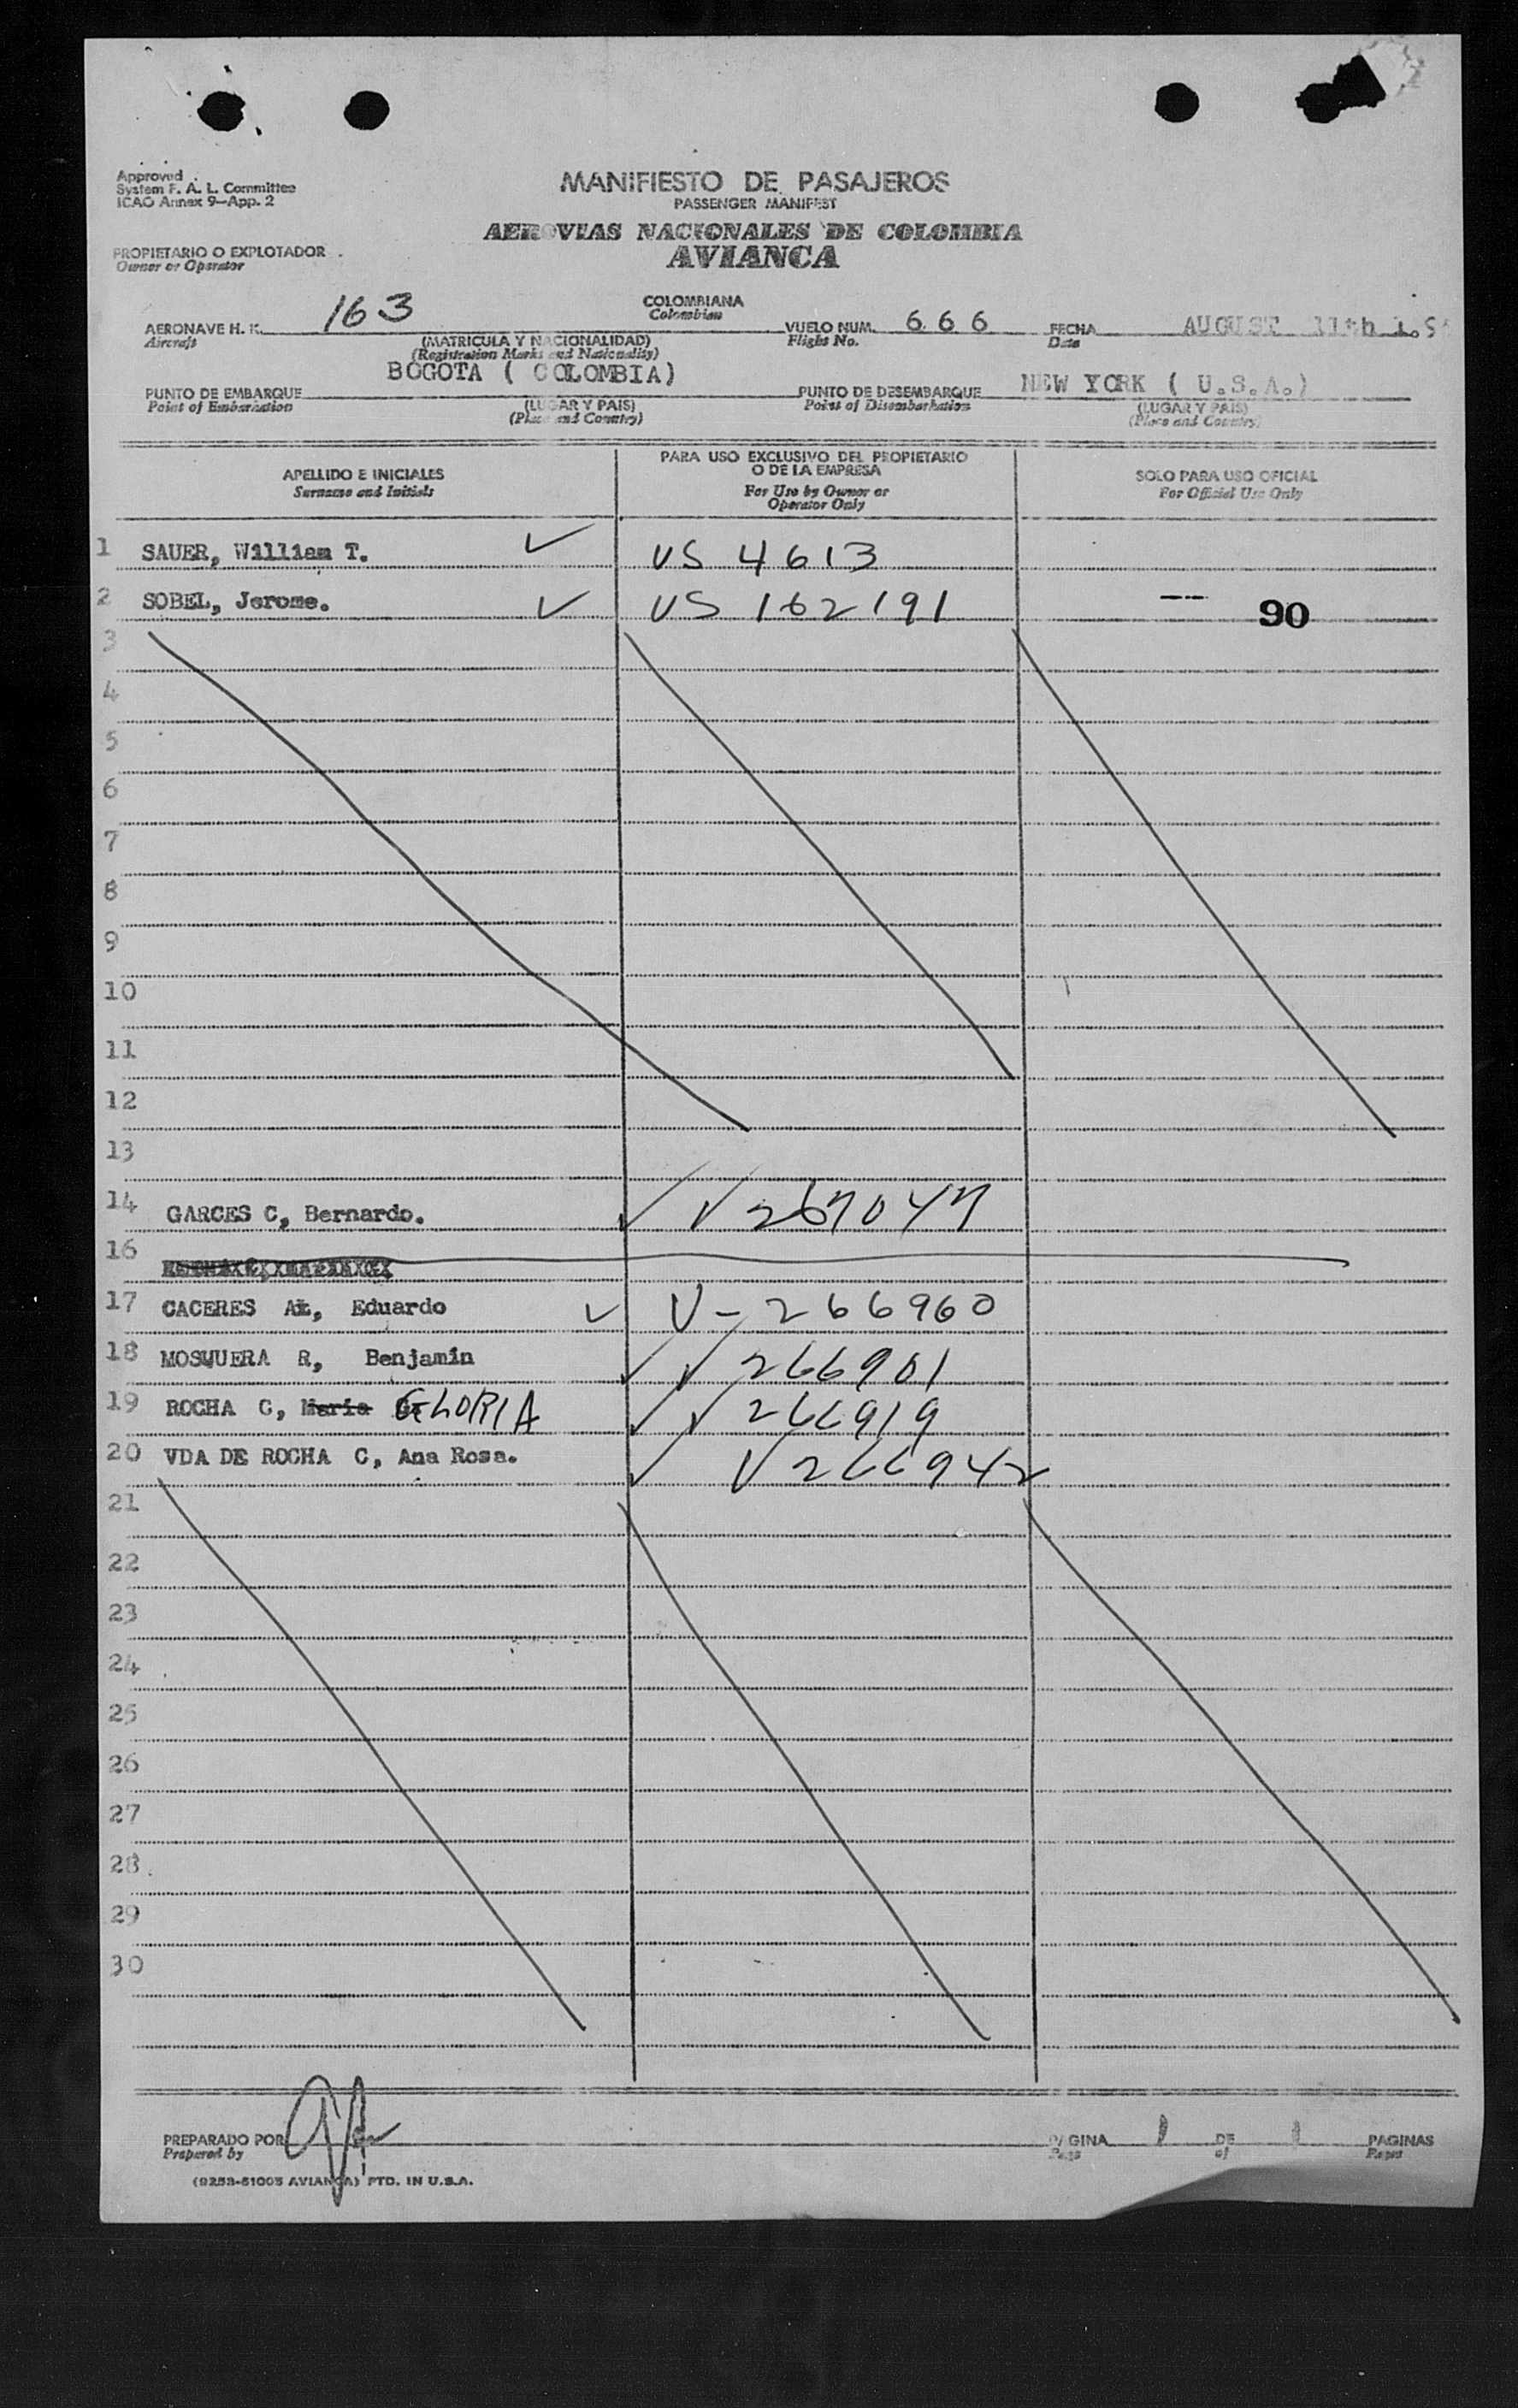 Approved
System F. A. L. Committee
ICAO Annex 9—App. 2
MANIFIESTO DE PASAJEROS
PASSENGER MANIFEST
AEROVIAS NACIONALES DE COLOMBIA
AVIANCA
PROPIETARIO O EXPLOTADOR
Owner or Operator
AERONAVE H. K. 163 COLOMBIANA VUELO NUM. 666 FECHA AUGUST 11th
Aircraft Colombian Flight No. Date
(MATRICULA Y NACIONALIDAD)
(Registration Marks and Nationality)
PUNTO DE EMBARQUE BOGOTA ( COLOMBIA) PUNTO DE DESEMBARQUE NEW YORK ( U.S.A.)
Point of Embarkation Point of Disembarkation
(LUGAR Y PAIS) (LUGAR Y PAIS)
(Place and Country) (Place and Country)
APELLIDO E INICIALES PARA USO EXCLUSIVO DEL PROPIETARIO O DE LA EMPRESA SOLO PARA USO OFICIAL
Surname and Initials For Use by Owner or Operator Only For Official Use Only
1 SAUER, William T. ✓ US 4613
2 SOBEL, Jerome. ✓ US 162191 90
3
4
5
6
7
8
9
10
11
12
13
14 GARCES C, Bernardo. ✓ V 267047
16
17 CACERES , Eduardo ✓ V-266960
18 MOSQUERA R, Benjamin ✓ V 266901
19 ROCHA C, Maria GLORIA ✓ V 266919
20 VDA DE ROCHA C, Ana Rosa. ✓ V 266942
21
22
23
24
25
26
27
28
29
30
PREPARADO POR PAGINA 1 DE 1 PAGINAS
Prepared by Page of Pages
(9253-51005 AVIANCA) PTD. IN U.S.A.